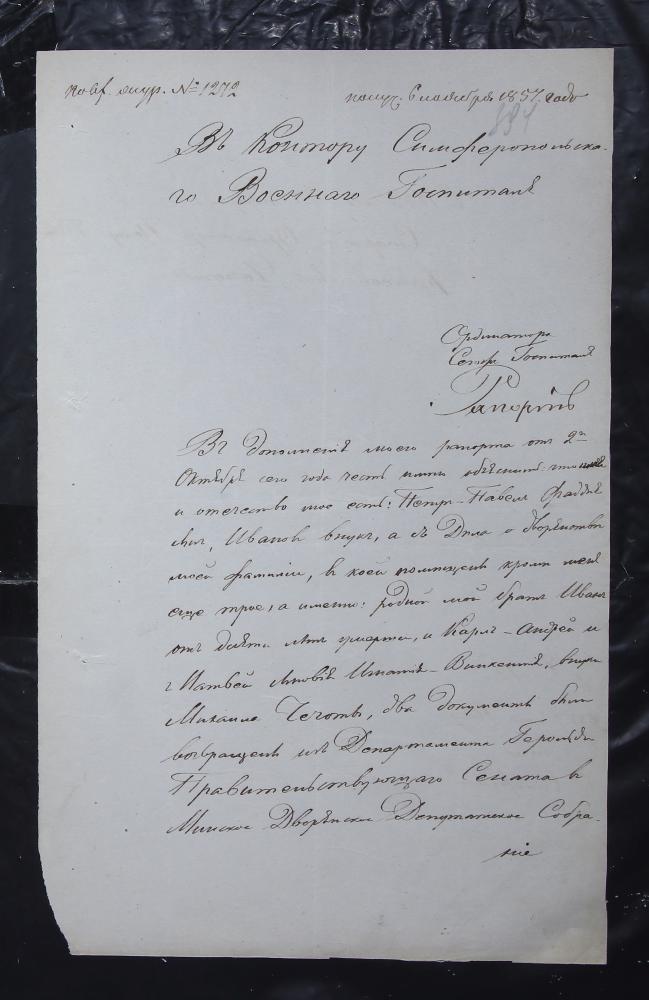 журн. № 1272
получ. 6 ноября 1857. года
394
Въ Контору Симферопольска-
го Военнаго Госпиталя
Ординатора
Госпиталя
Рапортъ
Въ дополненіе моего рапорта отъ 2го
Октября сего года честь имѣю объяснить: что имя
и отечество мое есть: Петръ-Павелъ Фаддѣя
сынъ, Ивановъ внукъ, а въ Дѣла о дворянствѣ
моей фамиліи, въ коей помѣщены кромѣ меня
еще трое, а именно: родной мой братъ Иванъ
отъ лѣтъ умершій, и Карлъ-Андрей и
Матвей сыновья Игнатія-Викентія, внуки
Михаила Чечоты, два документа были
возвращены изъ Департамента Герольдіи
Правительствующаго Сената въ
Минское Дворянское Депутатское Собра-
ніе